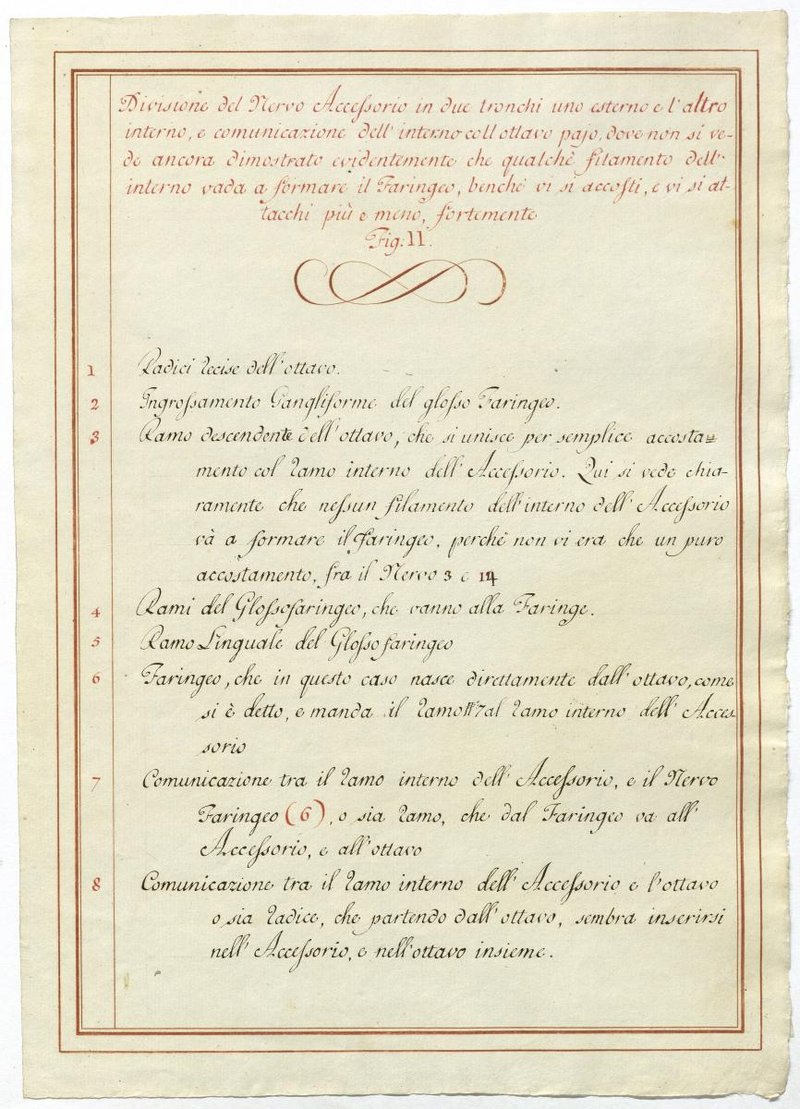 Divisione del Nervo Accessorio in due tronchi uno esterno e l'altro
interno, e comunicazione dell'interno coll ottavo pajo, dove non si ve-
de ancora dimostrato evidentemente che qualchè filamento dell'
interno vada a formare il Faringeo, benchè vi si accosti, e vi si at-
tacchi più e meno, fortemente
Fig: 11.
1 Radici recise dell'ottavo.
2 Ingrossamento Gangliforme del glosso Faringeo.
3 Ramo descendente dell'ottavo, che si unisce per semplice accosta=
mento col ramo interno dell'Accessorio. Qui si vede chia-
ramente che nessun filamento dell'interno dell'Accessorio
và a formare il faringeo, perchè non vi era che un puro
accostamento, fra il Nervo 3 e 14
4 Rami del Glossofaringeo, che vanno alla Faringe.
5 Ramo Linguale del Glossofaringeo
6 Faringeo, che in questo caso nasce direttamente dall'ottavo, come
si è detto, e manda il ramo 7 al ramo interno dell'Acces-
sorio
7 Comunicazione tra il ramo interno dell'Accessorio, e il Nervo
Faringeo (6), o sia ramo, che dal Faringeo va all'
Accessorio, e all'ottavo
8 Comunicazione tra il ramo interno dell'Accessorio e l'ottavo
o sia radice, che partendo dall'ottavo, sembra inserirsi
nell'Accessorio, e nell'ottavo insieme.